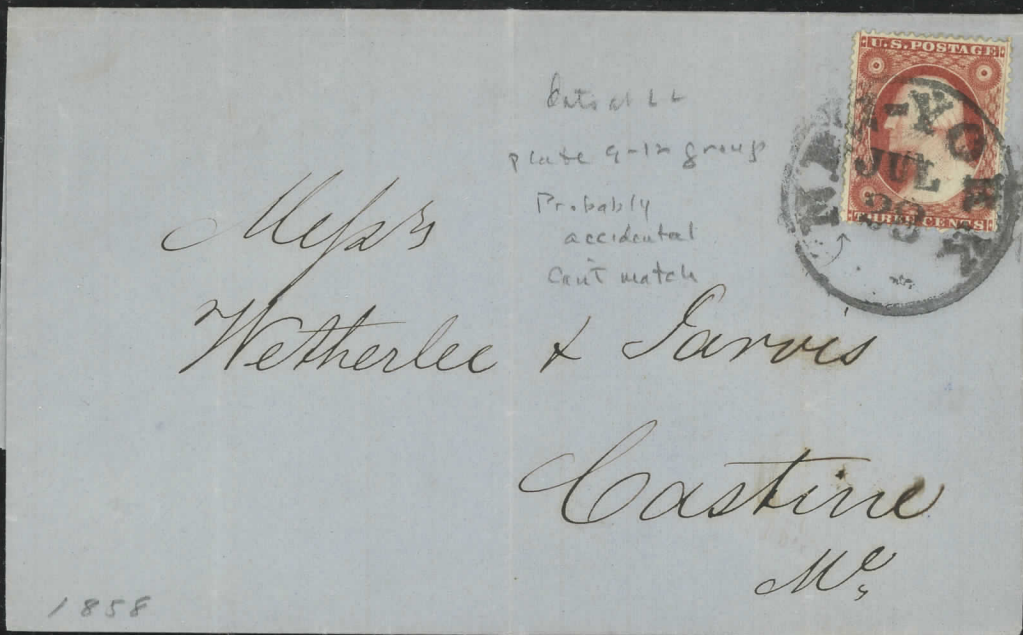 U.S. POSTAGE
NEW-YORK
JUL
THREE CENTS
Dots at LL
plate 9-12 group
Probably
accidental
Can't match
Mess^rs
Wetherlee & Jarvis
Castine
Me
1858